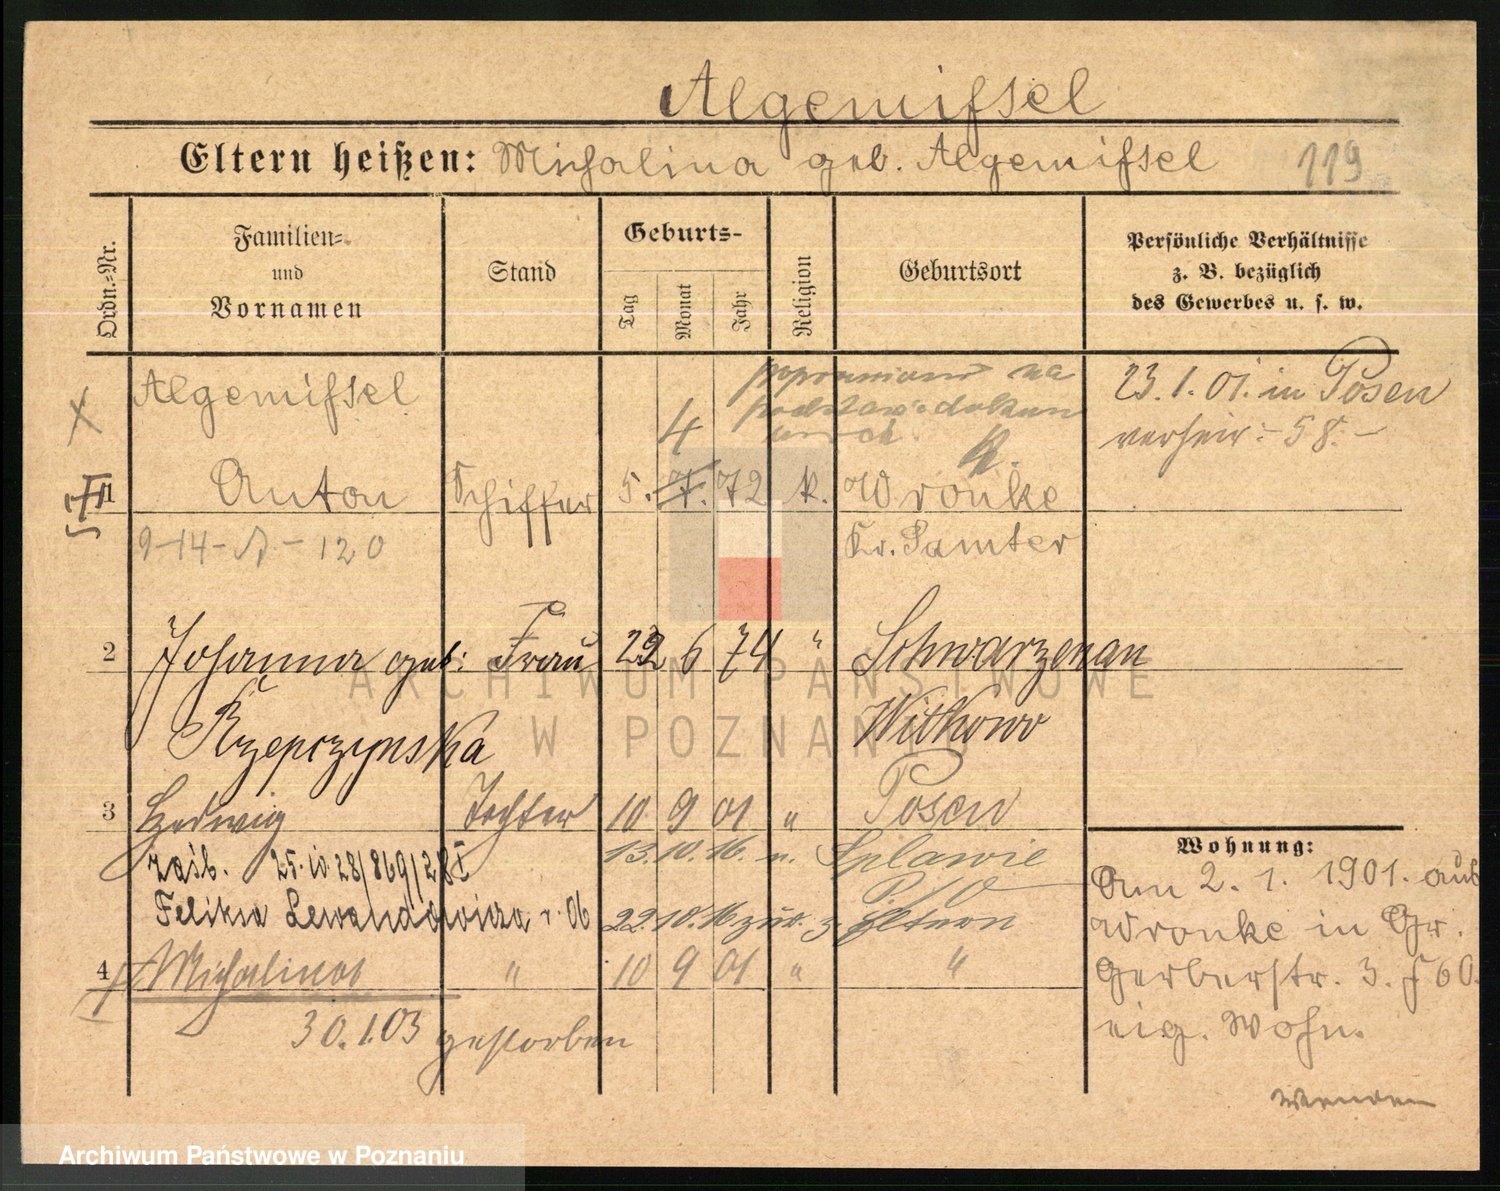 Algemissel
Eltern heißen: Michalina geb. Algemissel 119
Ordn.-Nr.
Familien= und Vornamen
Stand
Geburts-
Tag Monat Jahr
Religion
Geburtsort
Persönliche Verhältnisse
z. B. bezüglich
des Gewerbes u. s. w.
poprawiono na
podstawie dokum
4
Algemissel
23.1.01. in Posen
verheir: - 58. -
1 Anton Schiffer 5. 7. 72 k. Wronke
9-14- - 120 Kr. Samter
2 Johanna geb: Frau 22 6 74 " Schwarzenau
Rzepczynska Witkowo
3 Hedwig Tochter 10 9 01 " Posen
zaśb. 25.10.28/869/28 I 13.10.16. n. Splawie
P./O
Feliksa Lewandowicza r. 06 22.10.16 zur. z Eltern
4 Michalina " 10 9 01 " "
30.1.03 gestorben
Wohnung:
Am 2. 1. 1901. aus
Wronke in Gr.
Gerberstr. 3. f 60.
eig. Wohn.
Wenden
ARCHIWUM PAŃSTWOWE
W POZNANIU
Archiwum Państwowe w Poznaniu